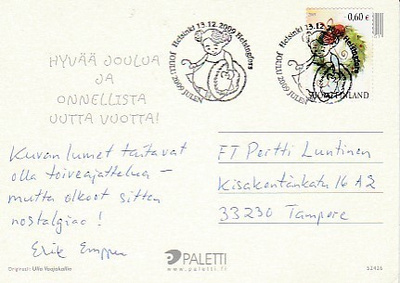 HYVÄÄ JOULUA
JA
ONNELLISTA
UUTTA VUOTTA!
Helsinki 13.12.2009 Helsingfors
JOULU 2009 JULEN
Helsinki 13.12.2009 Helsingfors
JOULU 2009 JULEN
0,60 €
SUOMI FINLAND
Kuvan lumet taitavat
olla toiveajattelua -
mutta olkoot sitten
nostalgiaa!
Erik
FT Pertti Luntinen
Kisakentänkatu 16 A2
33230 Tampere
PALETTI
www.paletti.fi
Original: Ulla Vaajakallio